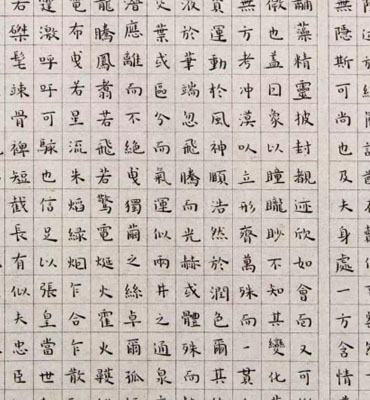 無隱斯可尚也及夫身處一方含情
黼藻精靈披封覩迹欣如會面又可
微也蓋因象以瞳曨眇不知其變化
無方考冲漠以立形齊萬殊而一貫
資運動於風神頤浩然於潤色爾其
液於筆端忽飛騰而光赫或體殊而
交葉或區分而氣運似兩井之通泉
潛應離而不絕曳獨繭之絲卓爾孤
龍騰鳳翥若飛若驚電烻㸌㷸
雲布曳若星流朱焰綠烟乍合乍散
霆激呼吁可駭也信足以張皇當世
若磔髦竦骨裨短截長有似夫忠臣